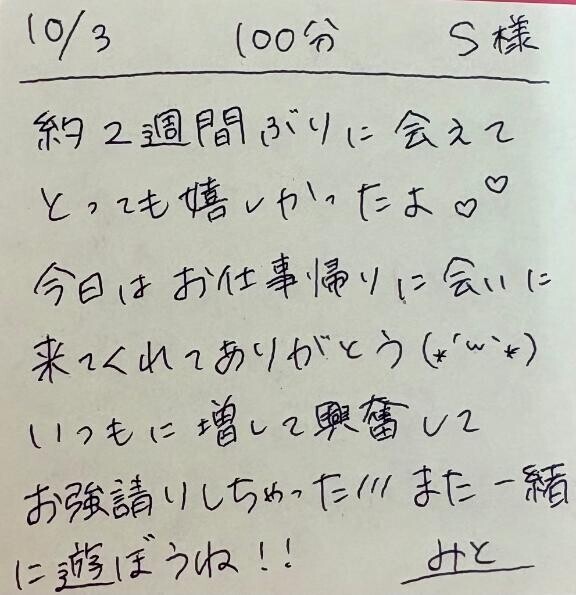 10/3 100分 S様
約2週間ぶりに会えて
とっても嬉しかったよ♡♡
今日はお仕事帰りに会いに
来てくれてありがとう(*´ω`*)
いつもに増して興奮して
お強請りしちゃった/// また一緒
に遊ぼうね!! みと